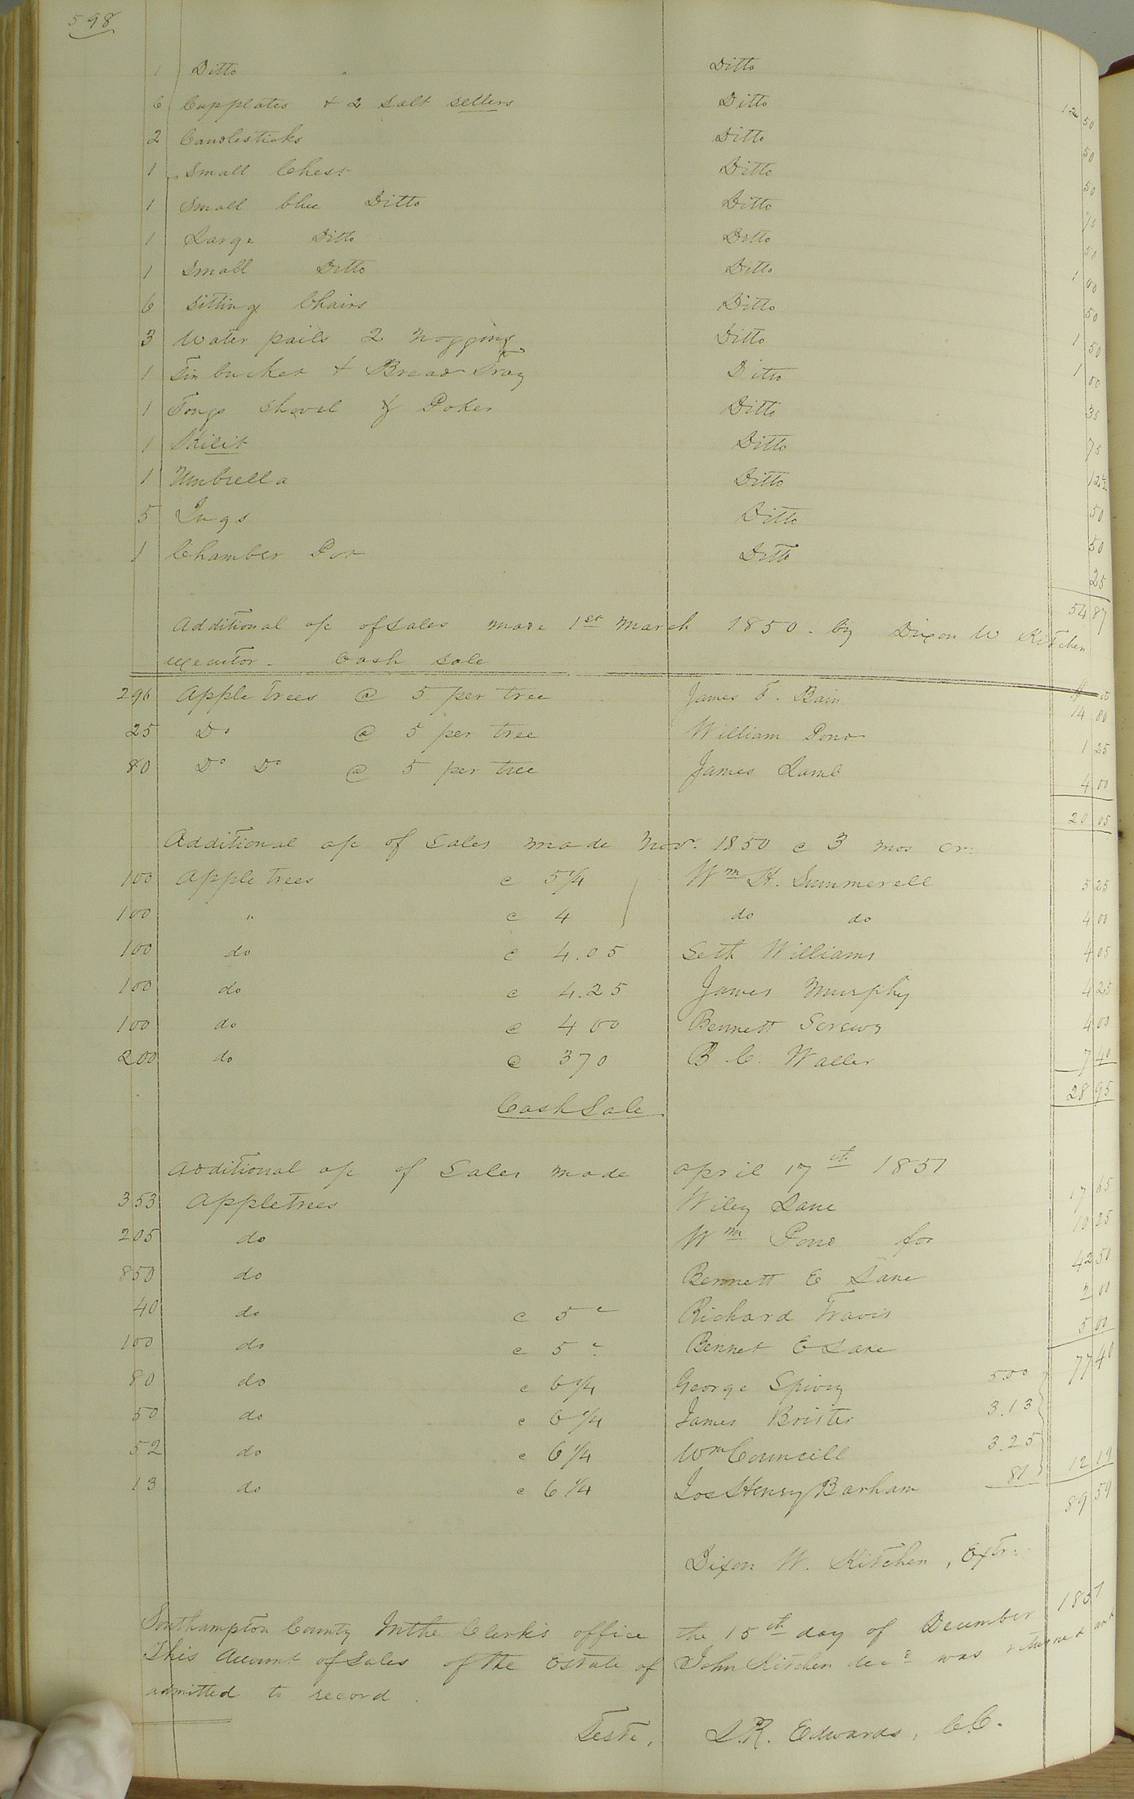 598
1 Ditto Ditto
6 Cupplates & 2 Salt Sellers Ditto 12 50
2 Candlesticks Ditto 50
1 Small Chest Ditto 50
1 Small blue Ditto Ditto 75
1 Large Ditto Ditto 50
1 Small Ditto Ditto 1 00
6 Sitting Chairs Ditto 50
3 Water pails 2 noggins Ditto 1 50
1 Tin bucket & Bread Tray Ditto 1 00
1 Tongs Shovel & Poker Ditto
1 Skilit Ditto 75
1 Umbrella Ditto 12½
5 Jugs Ditto 50
1 Chamber Pot Ditto 50
25
54 87
Additional a/c of Sales made 1st March 1850. by Dixon W Kitchen
executor. Cash Sale
296 Apple trees @ 5 per tree James F. Bain 14 80
25 Do @ 5 per tree William Pond 1 25
80 Do Do @ 5 per tree James Lamb 4 00
20 05
Additional a/c of Sales made Nov. 1850 @ 3 mos cr.
100 Apple trees @ 5¼ Wm H. Summerell 5 25
100 " @ 4 do do 4 00
100 do @ 4.05 Seth Williams 4 05
100 do @ 4.25 James Murphy 4 25
100 do @ 4 00 Bennett Screws 4 00
200 do @ 370 B. C. Waller 7 40
28 95
Cash Sale
Additional a/c of Sales made april 17th 1851
353 Appletrees Wiley Lane 17 65
205 do Wm Pond for 10 25
850 do Bennett E Lane 42 50
40 do @ 5c Richard Travis 2 00
100 do @ 5c Bennet E Lane 5 00
77 40
80 do @ 6¼ George Spivey 500
50 do @ 6¼ James Brister 3.13
52 do @ 6¼ Wm Councill 3.25
13 do @ 6¼ Jos Henry Barham 81 12 19
89 59
Dixon W. Kitchen, Extr.
Southampton County In the Clerk's office the 15th day of December 1851
This Account of Sales of the Estate of John Kitchen decd was returned and
admitted to record.
Teste, L.R. Edwards, C.C.